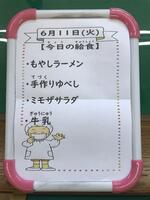 6月11日(火)
【今日の給食】
・もやしラーメン
・手作りゆべし
・ミモザサラダ
・牛乳